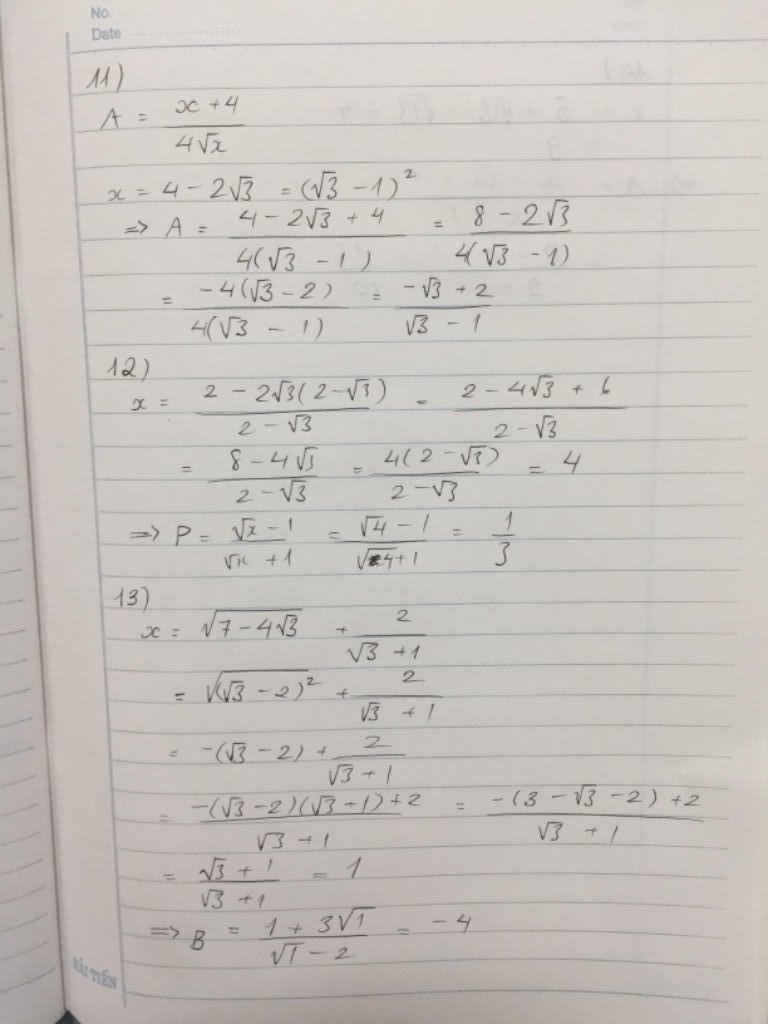 No.
Date
11)
A = (x + 4)/(4√x)
x = 4 - 2√3 = (√3 - 1)²
=> A = (4 - 2√3 + 4)/(4(√3 - 1)) = (8 - 2√3)/(4(√3 - 1))
= (-4(√3 - 2))/(4(√3 - 1)) = (-√3 + 2)/(√3 - 1)
12)
x = (2 - 2√3(2 - √3))/(2 - √3) = (2 - 4√3 + 6)/(2 - √3)
= (8 - 4√3)/(2 - √3) = (4(2 - √3))/(2 - √3) = 4
=> P = (√x - 1)/(√x + 1) = (√4 - 1)/(√4 + 1) = 1/3
13)
x = √(7 - 4√3) + 2/(√3 + 1)
= √((√3 - 2)²) + 2/(√3 + 1)
= -(√3 - 2) + 2/(√3 + 1)
= (-(√3 - 2)(√3 + 1) + 2)/(√3 + 1) = (-(3 - √3 - 2) + 2)/(√3 + 1)
= (√3 + 1)/(√3 + 1) = 1
=> B = (1 + 3√1)/(√1 - 2) = -4
HẢI TIẾN